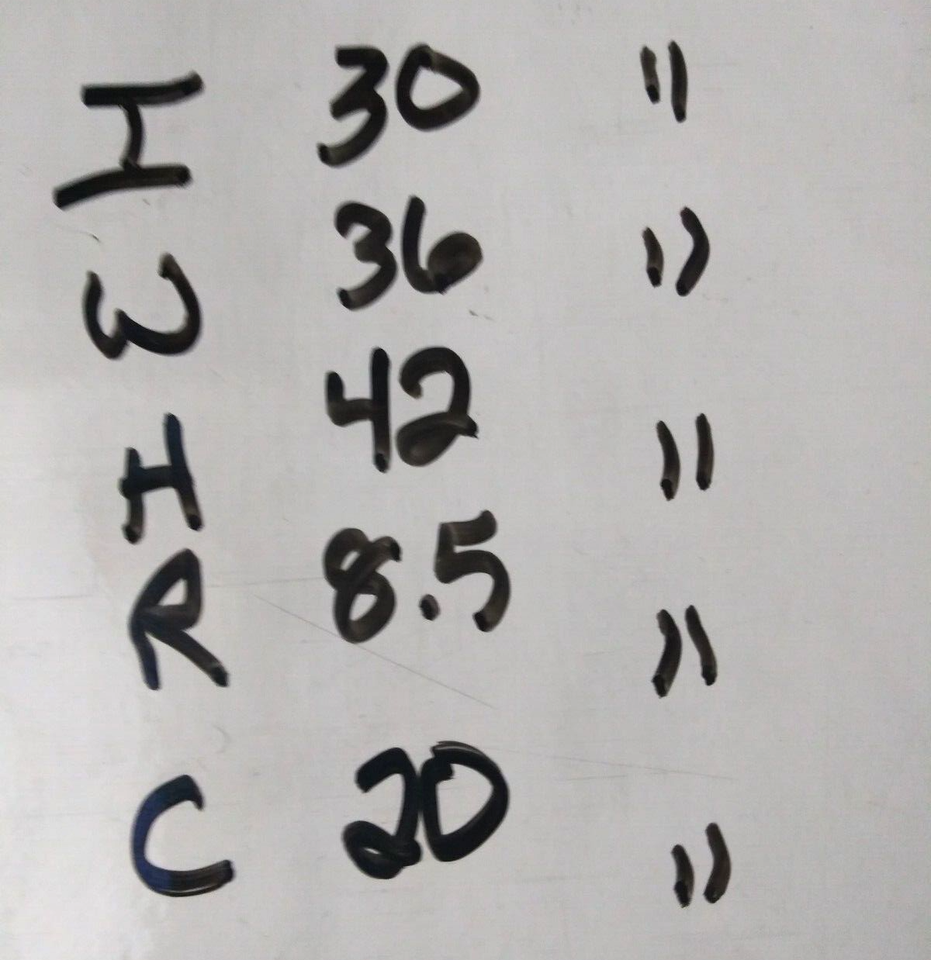 I 30 "
W 36 "
H 42 "
R 8.5 "
C 20 "